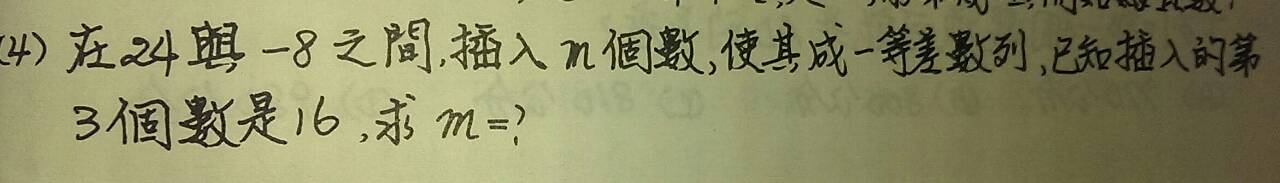 (4) 在24與 -8之間,插入n個數,使其成一等差數列,已知插入的第
3個數是16,求m=?